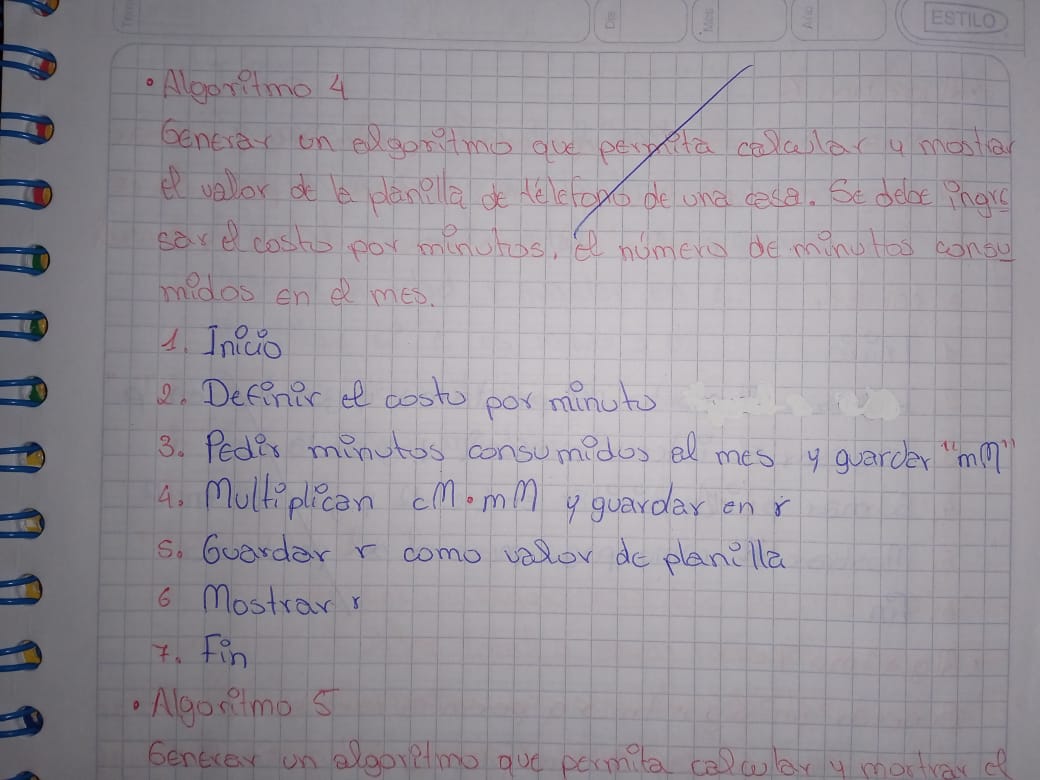 Tema
Día
Mes
Año
ESTILO
• Algoritmo 4
Generar un algoritmo que permita calcular y mostrar
el valor de la planilla de télefono de una casa. Se debe ingre
sar el costo por minutos, el número de minutos consu
midos en el mes.
1. Inicio
2. Definir el costo por minuto
3. Pedir minutos consumidos al mes y guarder "mM"
4. Multiplican cM•mM y guardar en r
5. Guardar r como valor de planilla
6 Mostrar r
7. Fin
• Algoritmo 5
Generar un algoritmo que permita calcular y mostrar el